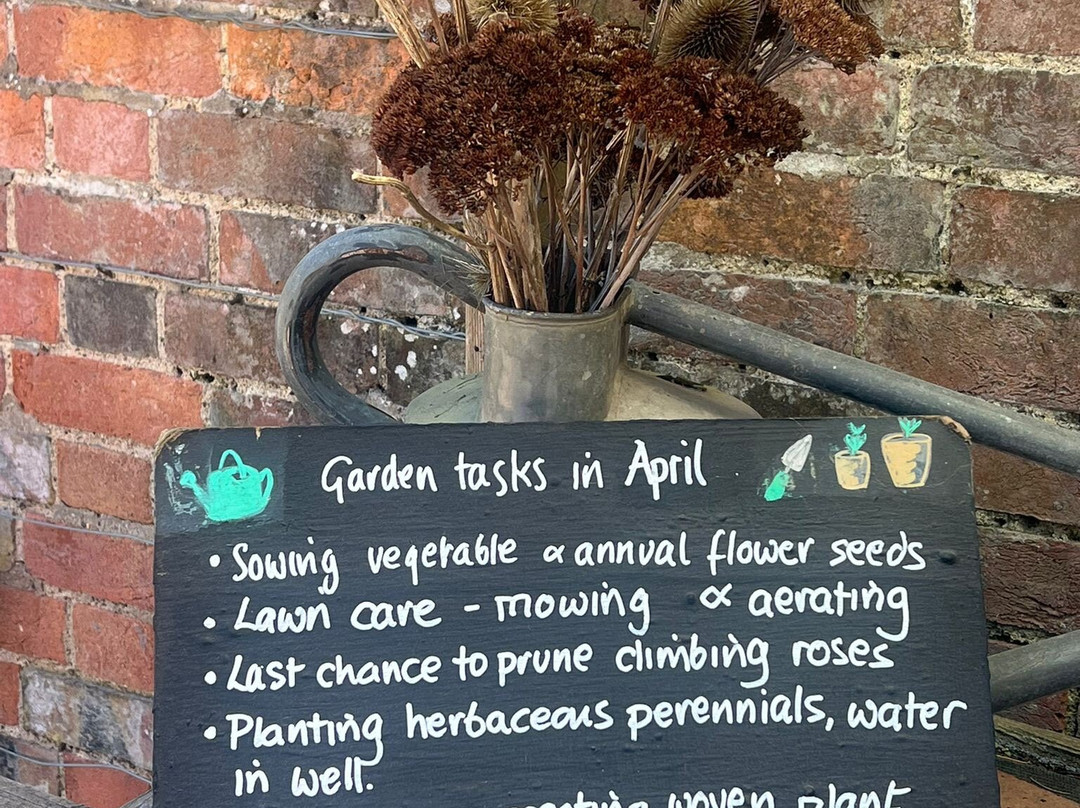 Garden tasks in April
• Sowing vegetable & annual flower seeds
• Lawn care - mowing & aerating
• Last chance to prune climbing roses
• Planting herbaceous perennials, water
in well.
woven plant